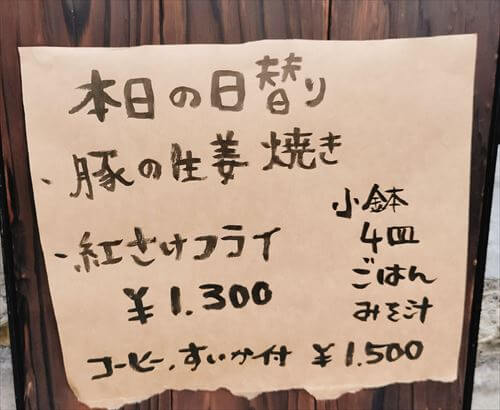 本日の日替り
・豚の生姜焼き
・紅さけフライ
¥1.300
小鉢
4皿
ごはん
みそ汁
コーヒー、すいか付 ¥1.500